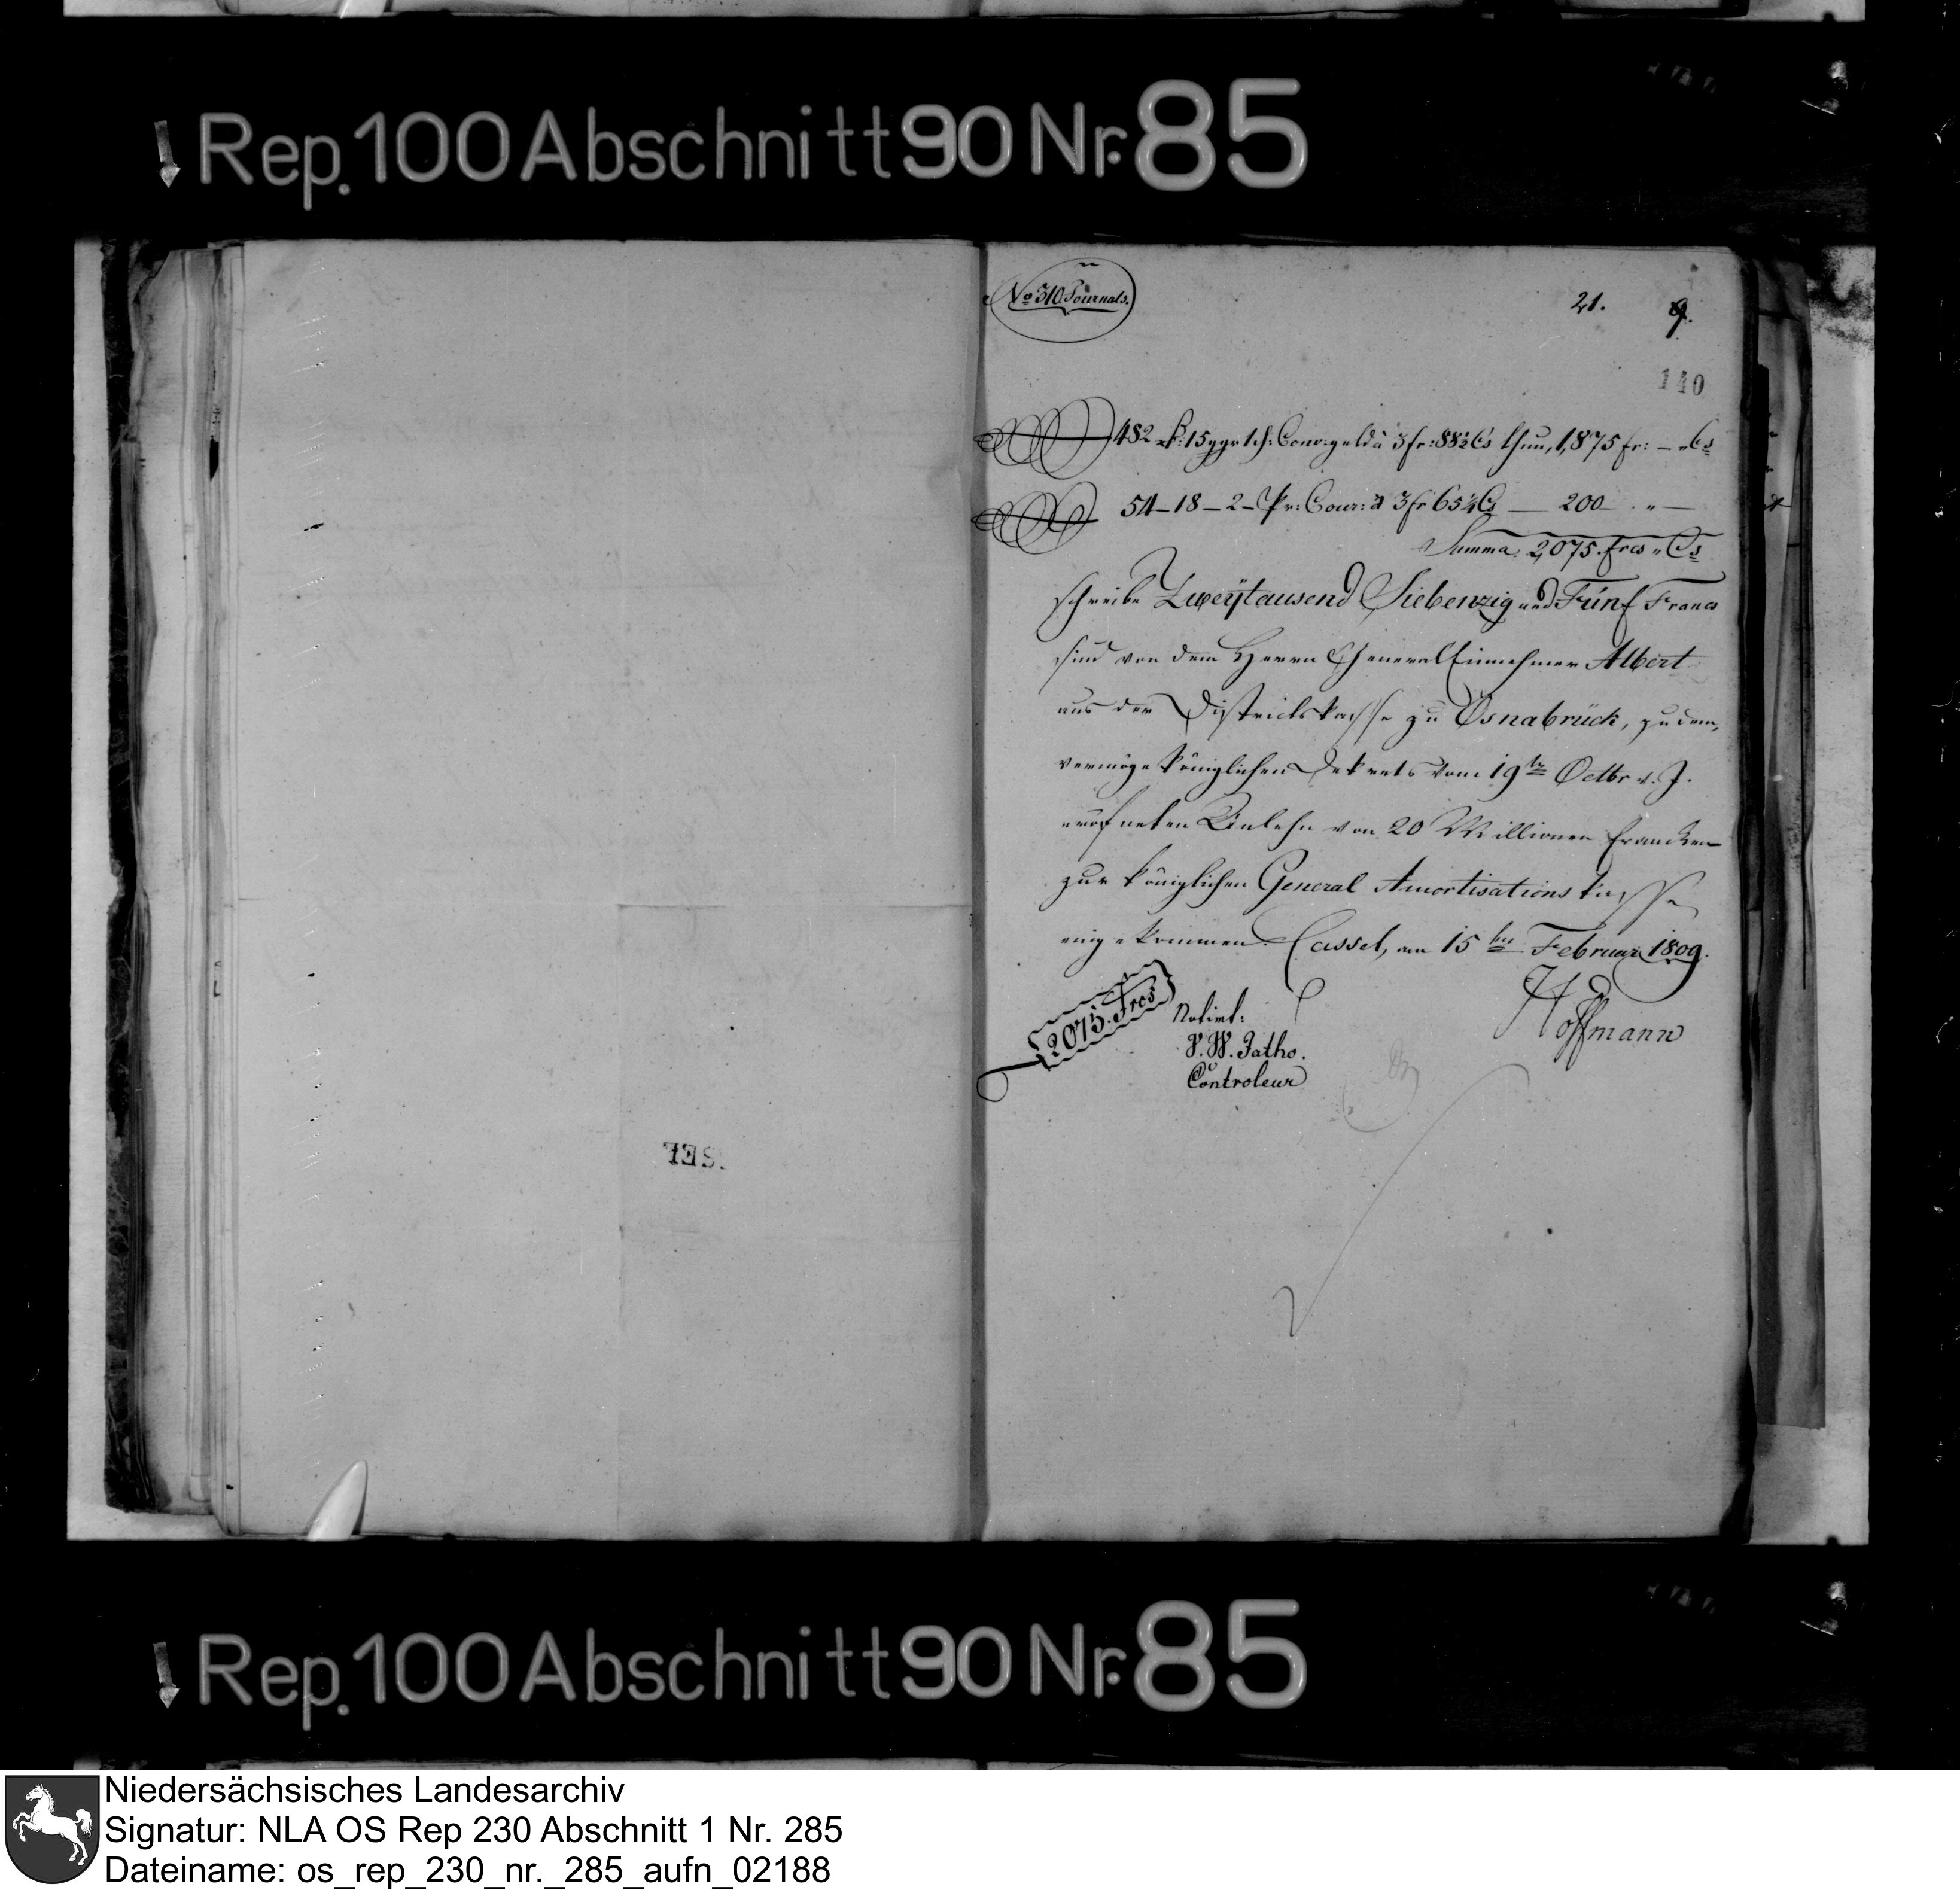 Rep. 100 Abschnitt 90 Nr. 85
No 310 Journals.
21. 9.
140
482 rt: 15 ggr 1 ch: Conv: geld à 3 fr: 88½ Cs thun, 1,875 fr: – „ Cs
54 – 18 – 2 – Pr: Cour: à 3 fr 65¼ Cs — 200 „ —
Summa. 2,075. frcs „ Cs
schreibe Zweytausend Siebenzig und Fünf Francs
sind von dem Herrn General Einnehmer Albert
aus der Districtskasse zu Osnabrück, zu dem,
vermöge königlichen Dekrets vom 19ten Octbr v. J.
eröfneten Anlehn von 20 Millionen Francken
zur königlichen General Amortisations kasse
eingekommen. Cassel, am 15ten Februar 1809.
2075. Frcs
Notirt:
V. W. Jatho.
Controleur
Hoffmann
SEL
Rep. 100 Abschnitt 90 Nr. 85
Niedersächsisches Landesarchiv
Signatur: NLA OS Rep 230 Abschnitt 1 Nr. 285
Dateiname: os_rep_230_nr._285_aufn_02188